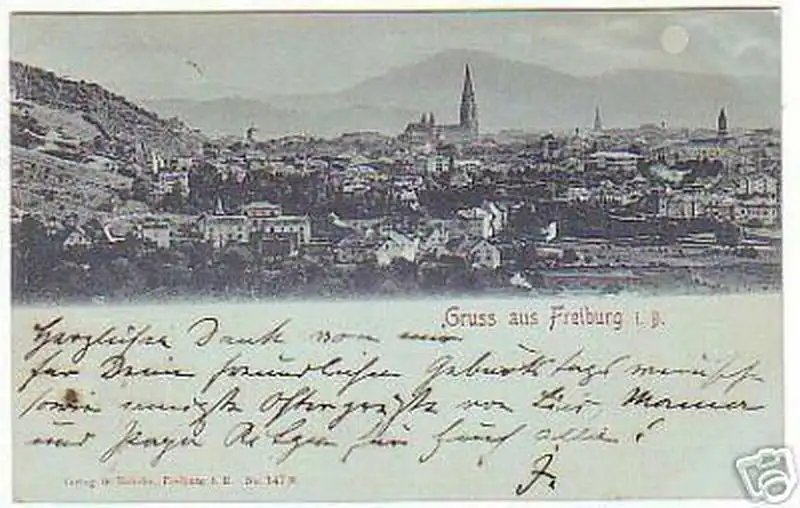 Gruss aus Freiburg i. B.
Herzlichen Dank von mir
für Deine freundlichen Geburtstags wünsche
sowie innigste Ostergrüße von Mama
und für Euch alle!
Fr.
Verlag Freiburg i. B. No. 147